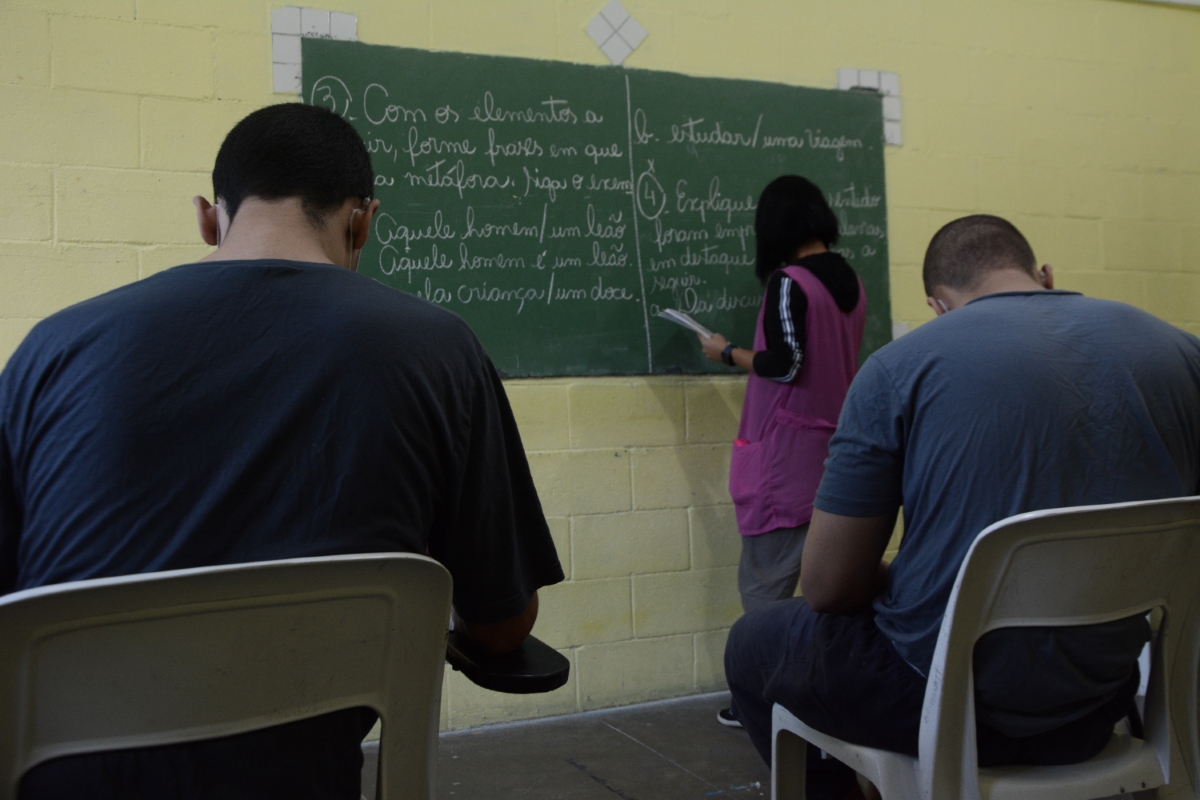 3. Com os elementos a
ir, forme frases em que
a metáfora. Siga o exem
Aquele homem/um leão
Aquele homem é um leão.
la criança/um doce.
b. estudar/uma viagem.
4. Explique entido
foram emp
em destaque a
seguir.
a